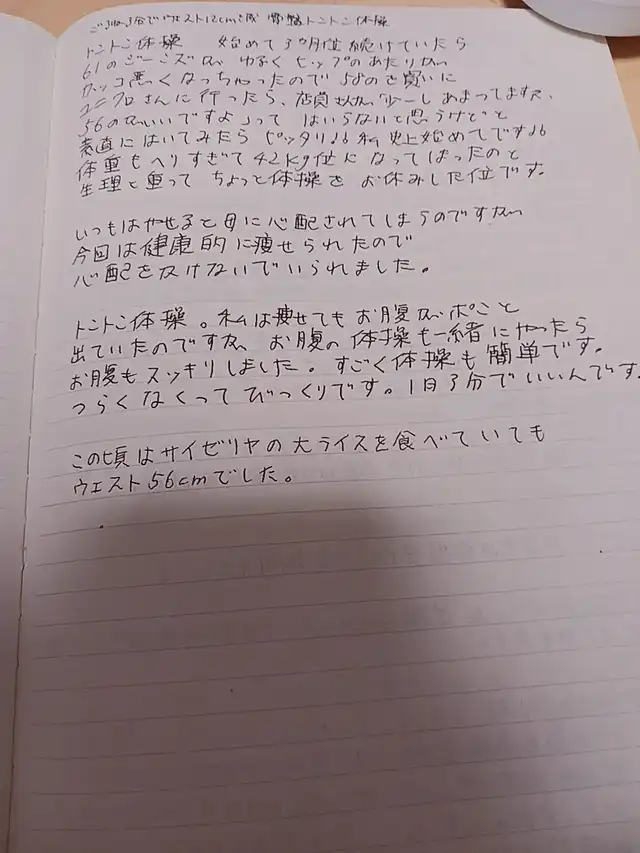 3分でウェスト12cm減 骨盤トントン体操
トントン体操 始めて3ヶ月位続けていたら
61のジーンズが ゆるく ヒップのあたりが
カッコ悪くなっちゃったので58のを買いに
ユニクロさんに行ったら、店員さんが少しあまってますね、
56のがいいですよ」って はいらないと思うけど、と
素直にはいてみたら ピッタリ♪♪私史上始めてです♪♪
体重もへりすぎて42kg位になってしまったのと
生理と重って ちょっと体操を お休みした位です。
いつもはやせると母に心配されてしまうのですが
今回は健康的に痩せられたので
心配をかけないでいられました。
トントン体操。私は痩せてもお腹がポこと
出ていたのですが、お腹の体操も一緒にやったら
お腹もスッキリしました。すごく体操も簡単です。
つらくなくってびっくりです。1日3分でいいんです。
この頃はサイゼリヤの大ライスを食べていても
ウェスト56cmでした。